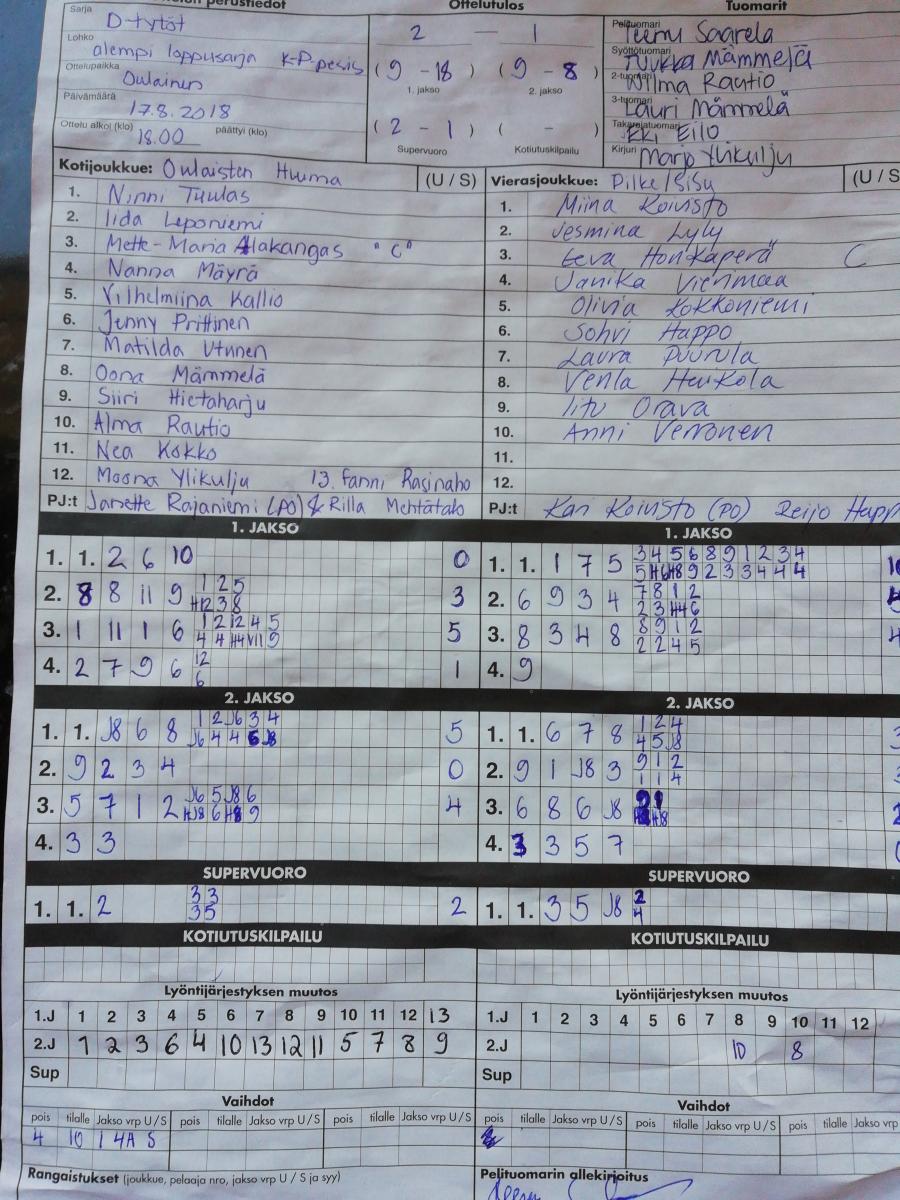 perustiedot Ottelutulos Tuomarit
Sarja D-tytöt 2 — 1 Pelituomari Teemu Saarela
Lohko alempi loppusarja K-P.pesis (9 - 18) (9 - 8) Syöttötuomari Tuukka Mämmelä
1. jakso 2. jakso
Ottelupaikka Oulainen 2-tuomari Wilma Rautio
Päivämäärä 17.8.2018 3-tuomari Lauri Mämmelä
Ottelu alkoi (klo) 18.00 päättyi (klo) (2 - 1) ( - ) Takarajatuomari Eilo
Supervuoro Kotiutuskilpailu Kirjuri Marjo Ylikulju
Kotijoukkue: Oulaisten Huima (U / S) Vierasjoukkue: Pilke/Sisu (U / S
1. Ninni Tuulas 1. Miina Koivisto
2. Iida Leponiemi 2. Jesmina Lyly
3. Mette-Maria Alakangas "C" 3. Eeva Honkaperä C
4. Nanna Mäyrä 4. Janika Vierimaa
5. Vilhelmiina Kallio 5. Olivia Kokkoniemi
6. Jenny Prittinen 6. Sohvi Happo
7. Matilda Utunen 7. Laura Puurula
8. Oona Mämmelä 8. Venla Haukola
9. Siiri Hietaharju 9. Iitu Orava
10. Alma Rautio 10. Anni Verronen
11. Nea Kokko 11.
12. Moona Ylikulju 13. Fanni Rasinaho 12.
PJ:t Janette Rajaniemi (PO) & Rilla Mehtätalo PJ:t Kari Koivisto (PO) Reijo Happ
1. JAKSO 1. JAKSO
1. 1. 2 6 10 0 1. 1. 1 7 5 3 4 5 6 8 9 1 2 3 4
5 H6 H8 9 2 3 3 4 4 4
2. 8 8 11 9 1 2 5 3 2. 6 9 3 4 7 8 1 2
H12 3 8 2 3 H4 6
3. 1 11 1 6 1 2 12 4 5 5 3. 8 3 4 8 8 9 1 2 4
4 4 H4 V11 9 2 2 4 5
4. 2 7 9 6 12 1 4. 9
6
2. JAKSO 2. JAKSO
1. 1. J8 6 8 1 2 J6 3 4 5 1. 1. 6 7 8 1 2 4 3
J6 4 4 5 J8 4 5 J8
2. 9 2 3 4 0 2. 9 1 J8 3 9 1 2 3
1 1 4
3. 5 7 1 2 J6 5 J8 6 4 3. 6 8 6 J8 2
HJ8 6 H8 9
4. 3 3 4. 3 3 5 7
SUPERVUORO SUPERVUORO
1. 1. 2 3 3 2 1. 1. 3 5 J8 2
3 5 4
KOTIUTUSKILPAILU KOTIUTUSKILPAILU
Lyöntijärjestyksen muutos Lyöntijärjestyksen muutos
1.J 1 2 3 4 5 6 7 8 9 10 11 12 13 1.J 1 2 3 4 5 6 7 8 9 10 11 12
2.J 1 2 3 6 4 10 13 12 11 5 7 8 9 2.J 10 8
Sup Sup
Vaihdot Vaihdot
pois tilalle Jakso vrp U / S pois tilalle Jakso vrp U / S pois tilalle Jakso vrp U / S pois tilalle Jakso vrp U / S pois tilalle Jakso vrp U / S pois tilalle Jakso vrp
4 10 1 4A S
Rangaistukset (joukkue, pelaaja nro, jakso vrp U / S ja syy) Pelituomarin allekirjoitus